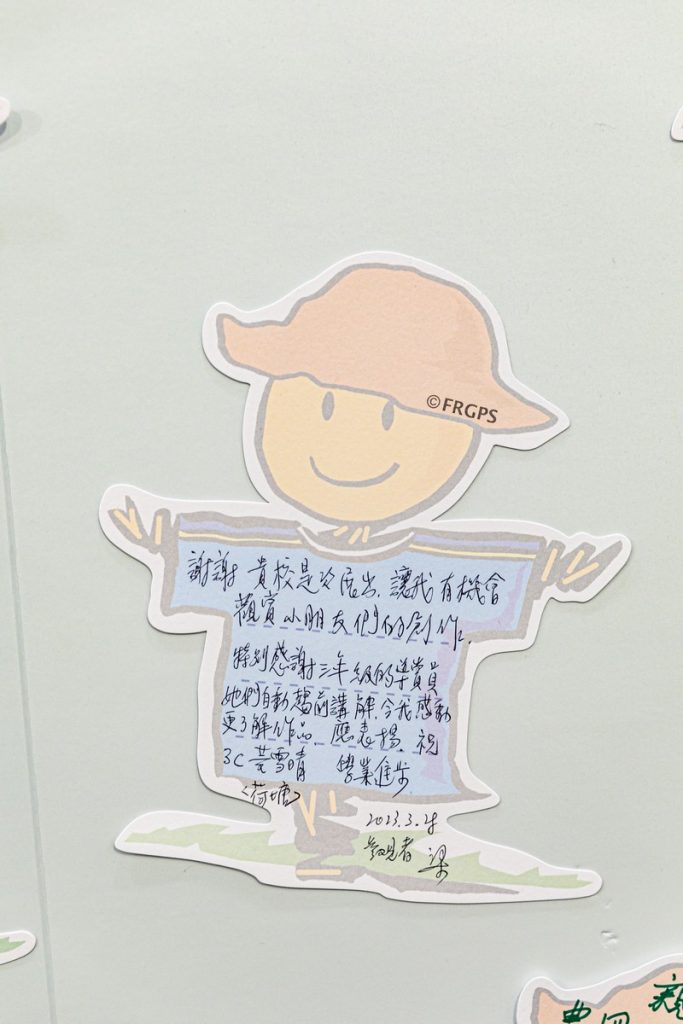 ©FRGPS
謝謝 貴校是次展出, 讓我有機會
觀賞小朋友們的創作.
特別感謝三年級的導賞員
她們自動踏前講解, 令我感動
更了解作品, 應表揚. 祝
3C 雪晴 學業進步
<荷塘>
2023.3.
參觀者 梁